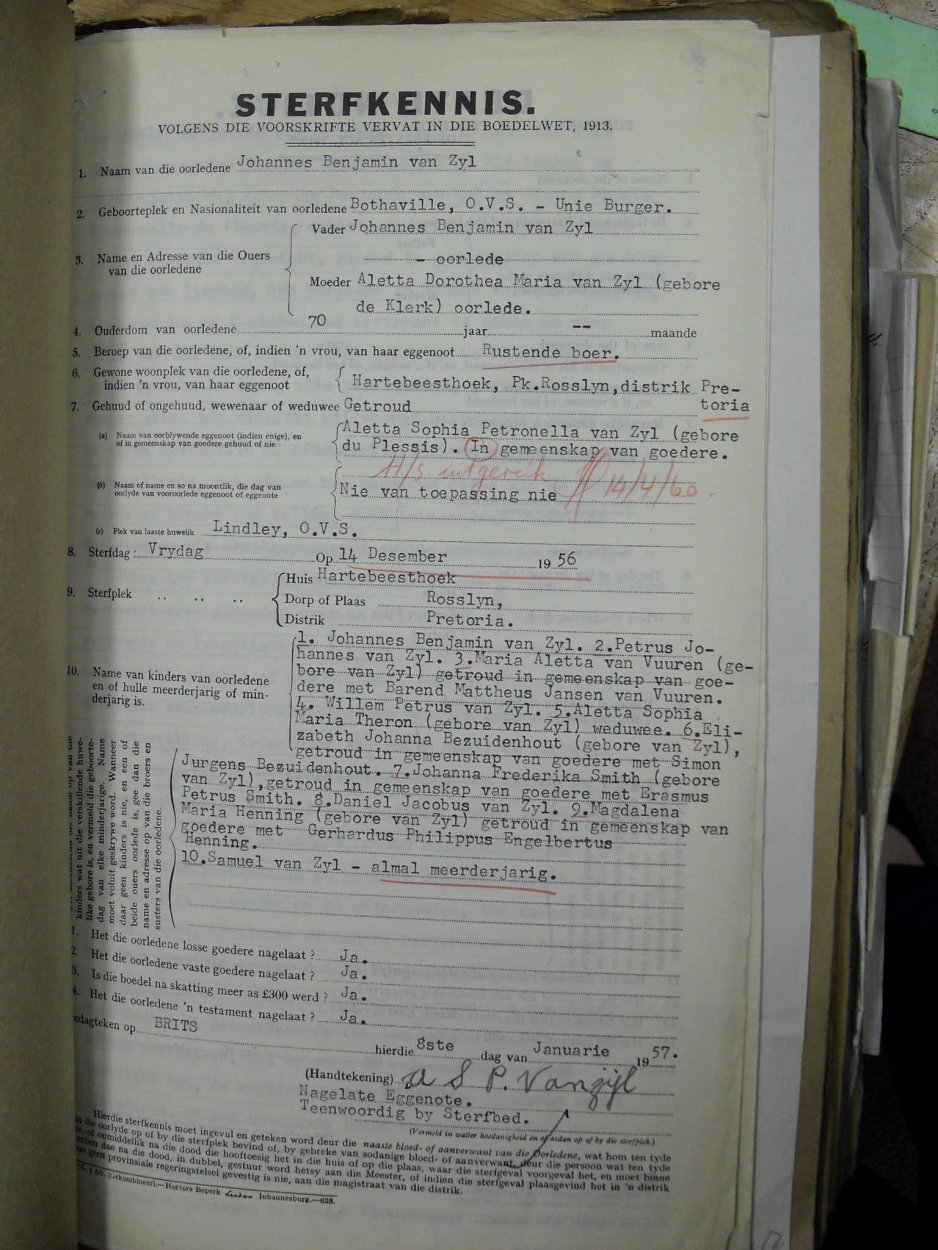 STERFKENNIS.
VOLGENS DIE VOORSKRIFTE VERVAT IN DIE BOEDELWET, 1913.
1. Naam van die oorledene Johannes Benjamin van Zyl
2. Geboorteplek en Nasionaliteit van oorledene Bothaville, O.V.S. - Unie Burger.
3. Name en Adresse van die Ouers van die oorledene
Vader Johannes Benjamin van Zyl
- oorlede
Moeder Aletta Dorothea Maria van Zyl (gebore
de Klerk) oorlede.
4. Ouderdom van oorledene 70 jaar -- maande
5. Beroep van die oorledene, of, indien 'n vrou, van haar eggenoot Rustende boer.
6. Gewone woonplek van die oorledene, of,
indien 'n vrou, van haar eggenoot
Hartebeesthoek, Pk.Rosslyn,distrik Pre-
7. Gehuud of ongehuud, wewenaar of weduwee Getroud toria
(a) Naam van oorblywende eggenoot (indien enige), en
of in gemeenskap van goedere gehuud of nie
Aletta Sophia Petronella van Zyl (gebore
du Plessis). In gemeenskap van goedere.
H/S uitgereik 14/4/60.
(b) Naam of name en so na moontlik, die dag van
oorlyde van vooroorlede eggenoot of eggenote
Nie van toepassing nie
(c) Plek van laaste huwelik Lindley, O.V.S.
8. Sterfdag: Vrydag Op 14 Desember 1956
9. Sterfplek .. .. ..
Huis Hartebeesthoek
Dorp of Plaas Rosslyn,
Distrik Pretoria.
10. Name van kinders van oorledene
en of hulle meerderjarig of min-
derjarig is.
1. Johannes Benjamin van Zyl. 2.Petrus Jo-
hannes van Zyl. 3.Maria Aletta van Vuuren (ge-
bore van Zyl) getroud in gemeenskap van goe-
dere met Barend Mattheus Jansen van Vuuren.
4. Willem Petrus van Zyl. 5.Aletta Sophia
Maria Theron (gebore van Zyl) weduwee. 6.Eli-
zabeth Johanna Bezuidenhout (gebore van Zyl),
getroud in gemeenskap van goedere met Simon
Jurgens Bezuidenhout. 7.Johanna Frederika Smith (gebore
van Zyl),getroud in gemeenskap van goedere met Erasmus
Petrus Smith. 8.Daniel Jacobus van Zyl. 9.Magdalena
Maria Henning (gebore van Zyl) getroud in gemeenskap van
goedere met Gerhardus Philippus Engelbertus
Henning.
10.Samuel van Zyl - almal meerderjarig.
kinders wat uit die verskillende huwe-
like gebore is, en vermeld die geboorte-
dag van elke minderjarige. Name
moet voluit geskrywe word. Wanneer
daar geen kinders is nie, en een of
beide ouers oorlede is, gee dan die
name en adresse op van die broers en
susters van die oorledene.
1. Het die oorledene losse goedere nagelaat? Ja.
2. Het die oorledene vaste goedere nagelaat? Ja.
3. Is die boedel na skatting meer as £300 werd? Ja.
4. Het die oorledene 'n testament nagelaat? Ja.
edagteken op BRITS
hierdie 8ste dag van Januarie 1957.
(Handtekening) A S P. Vanzyl
Nagelate Eggenote.
Teenwoordig by Sterfbed.
(Vermeld in watter hoedanigheid en of aldan op of by die sterfplek.)
Hierdie sterfkennis moet ingevul en geteken word deur die naaste bloed- of aanverwant van die Oorledene, wat hom ten tyde
die oorlyde op of by die sterfplek bevind of, by gebreke van sodanige bloed- of aanverwant, deur die persoon wat ten tyde
of onmiddelik na die dood die hooftoesig het in die huis of op die plaas, waar die sterfgeval voorgeval het, en moet binne
dae na die dood, in dubbel, gestuur word hetsy aan die Meester, of indien die sterfgeval plaasgevind het in 'n distrik
geen provinsiale regeringstelsel gevestig is nie, aan die magistraat van die distrik.
Johannesburg.—628.